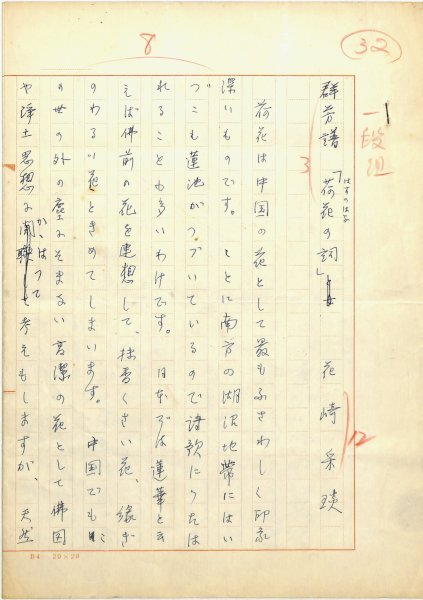 32
8
一段組
3
群芳譜「荷花の詞」 花崎采琰
はすのはな
12
荷花は中国の花として最もふさわしく印象
深いものです。ことに南方の湖沼地帯にはい
づこも蓮池がつづいているので詩歌にうたは
れることも多いわけです。日本では蓮華と云
えば佛前の花を連想して、抹香くさい花、縁ぎ
のわるい花ときめてしまいます。中国でもこ
の世の外の塵にそまない高潔の花として佛国
や浄土思想にかゝはつて考えもしますが、天然
B4 20×20